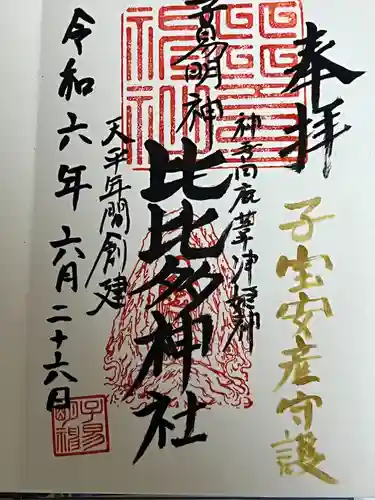 奉拝
子宝安産守護
子易明神
比比多神社
天平年間創建
令和六年六月二十六日
子易明神